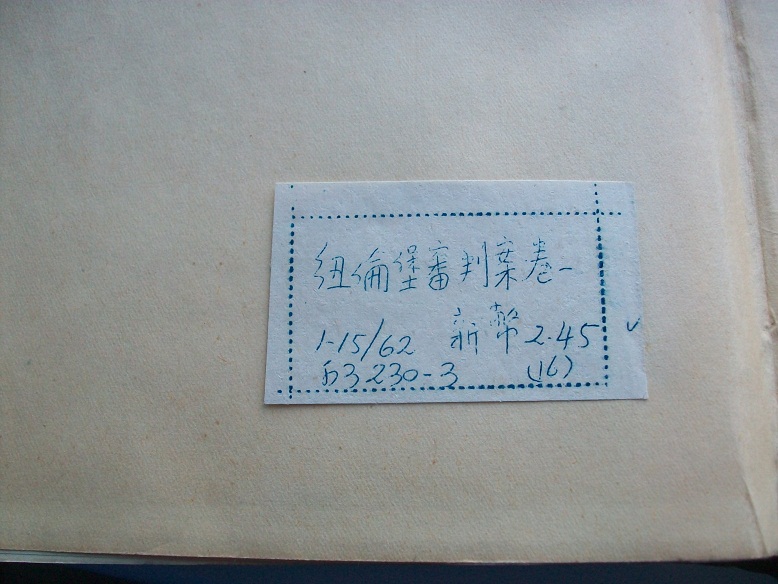 纽倫堡審判案卷一
1-15/62 新幣 2.45
53230-3 (16)